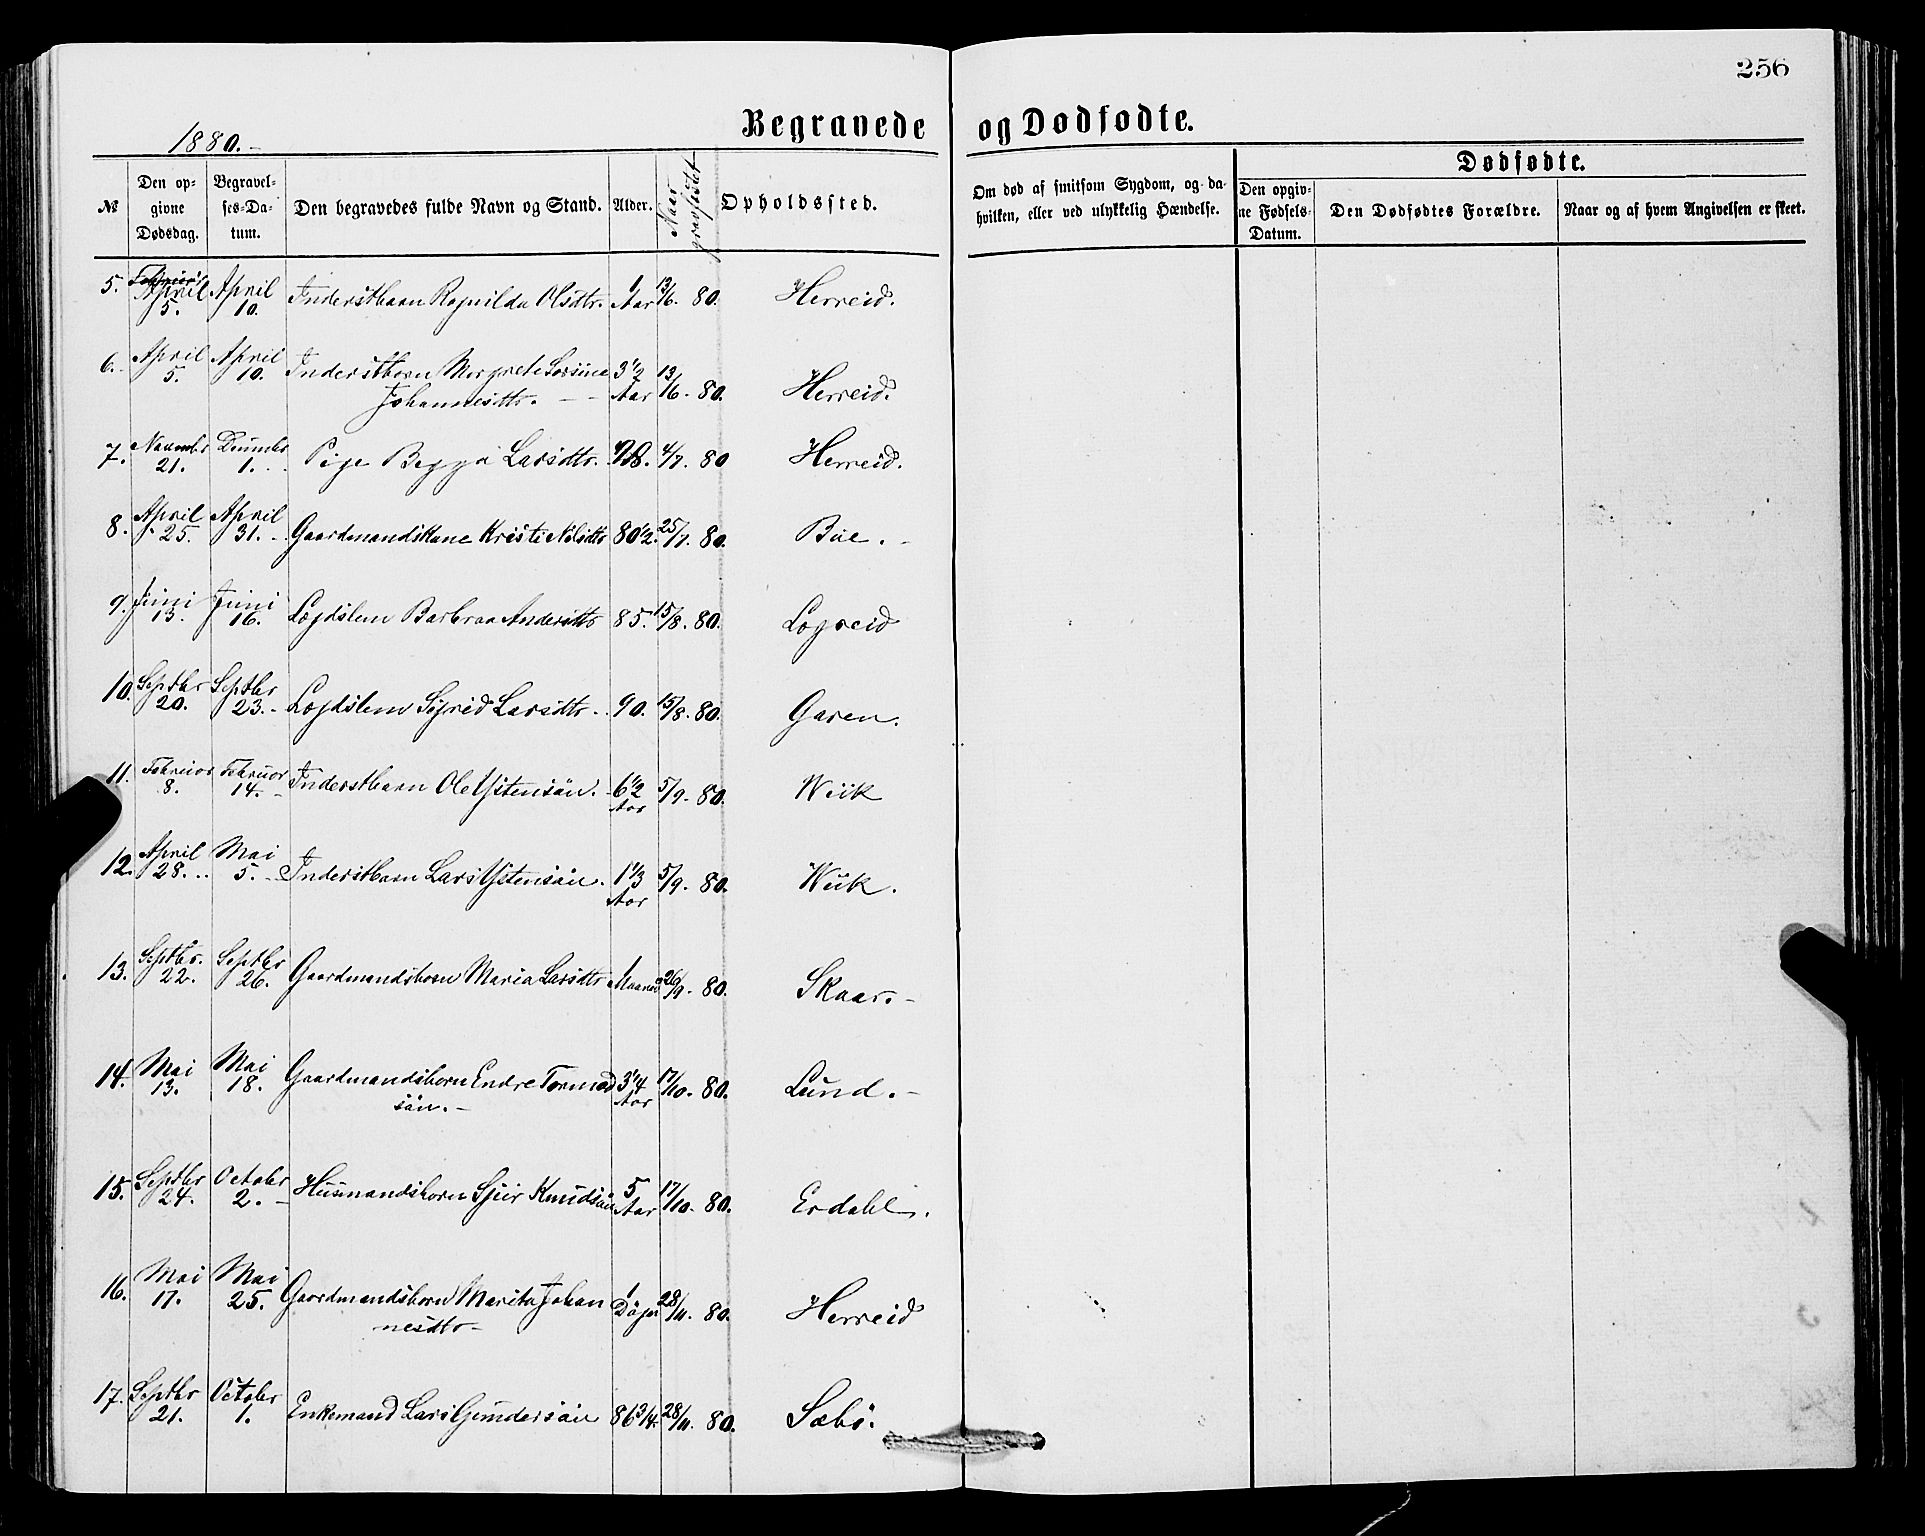 256
Begravede og Dødfødte.
1880.-
№ Den opgivne Dødsdag. Begravelses-Datum. Den begravedes fulde Navn og Stand. Alder. Naar gravfæstet Opholdssted. Om død af smitsom Sygdom, og da hvilken, eller ved ulykkelig Hændelse. Dødfødte.
Den opgivne Fødsels-Datum. Den Dødfødtes Forældre. Naar og af hvem Angivelsen er skeet.
5. April 5. April 10. Inderstbarn Ragnilda Olsdtr. 1 Aar 13/6. 80. Herreid.
6. April 5. April 10. Inderstbarn Margrete Sersine 3 1/2 Aar 13/6. 80. Herreid.
Johannesdtr. - -
7. Novembr 21. Decembr 1. Pige Begga Larsdtr. 4/7. 80 Herreid.
8. April 25. April 31. Gaardmandskone Kristi Nilsdtr 80 1/2. 25/7. 80. Bue. -
9. Juni 13. Juni 16. Lægdslem Barbraa Andersdtr 85. 15/8. 80. Løgreid
10. Septbr 20. Septbr 23. - Lægdslem Sigrid Larsdtr. 90. 15/8. 80. Garen.
11. Februar 8. Februar 14. Inderstbarn Ole Ystensøn. 6 1/2 Aar 5/9. 80. Wiik
12. April 28. Mai 5. Inderstbarn Lars Ystensøn. 1 1/3 Aar 5/9. 80. Wiik.
13. Septbr. 22. Septbr 26. Gaardmandsbarn Maria Larsdtr 1 Maaned 26/9. 80. Skaar. -
14. Mai 13. Mai 18. Gaardmandsbarn Endre Tormod 3 1/4 Aar 17/10. 80. Lund. -
søn. -
15. Septbr 24. October 2. - Husmandsbarn Sjur Knudsøn 5 Aar 17/10. 80. Erdahl.
16. Mai 17. Mai 25. Gaardmandsbarn Marita Johan 1 Døgn 28/11. 80. Herreid
nesdtr -
17. Septbr 21. October 1. Enkemand Lars Gundersøn 86 3/4. 28/11. 80. Sæbø.